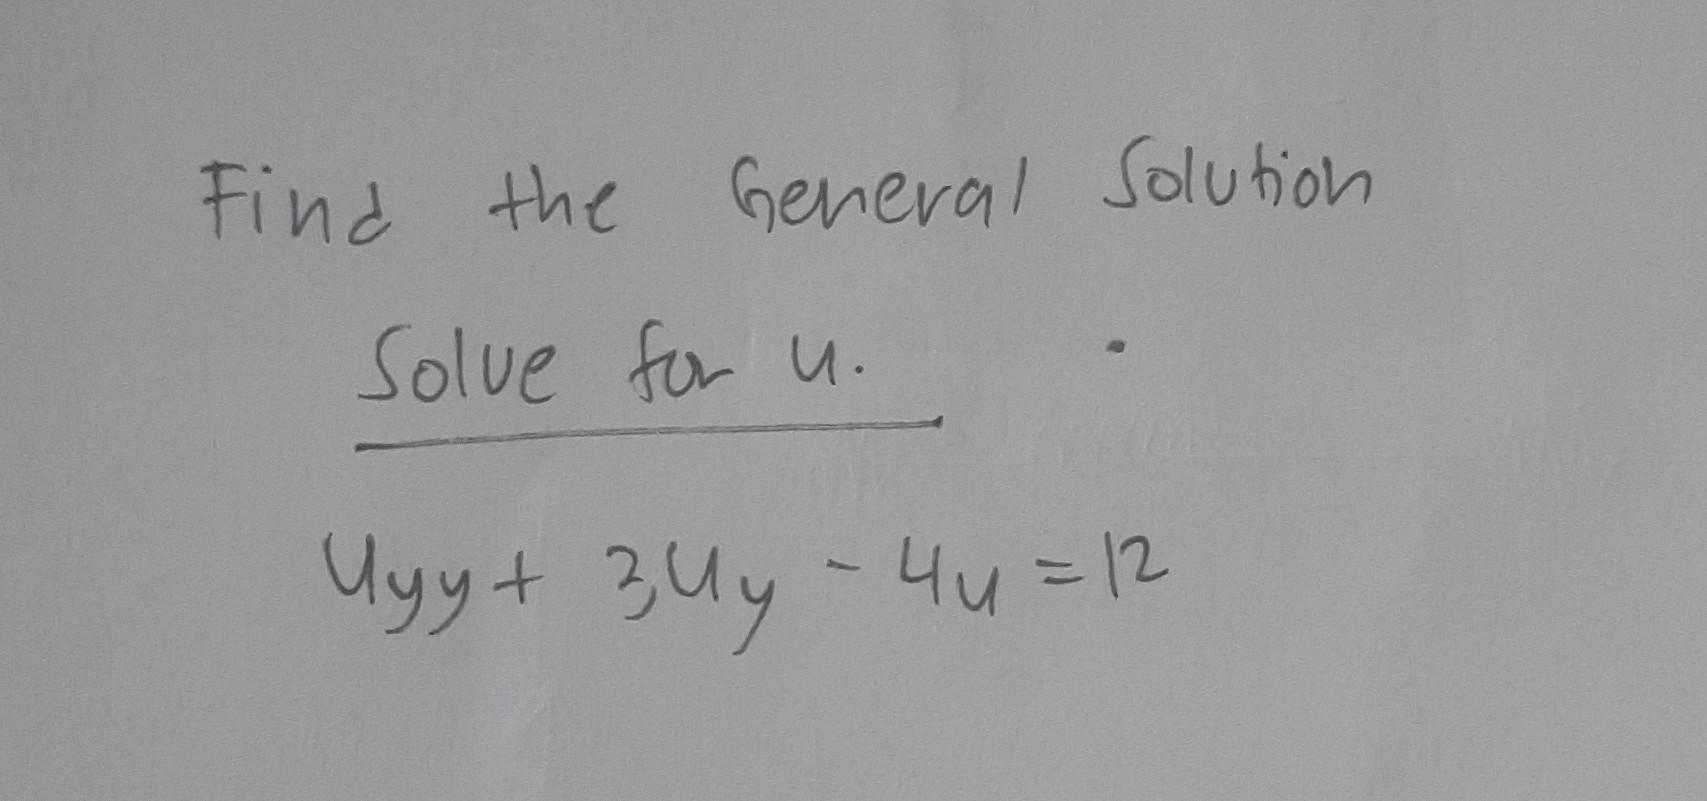 Find the General Solution
Solve for u.
Uyy + 3Uy - 4u = 12